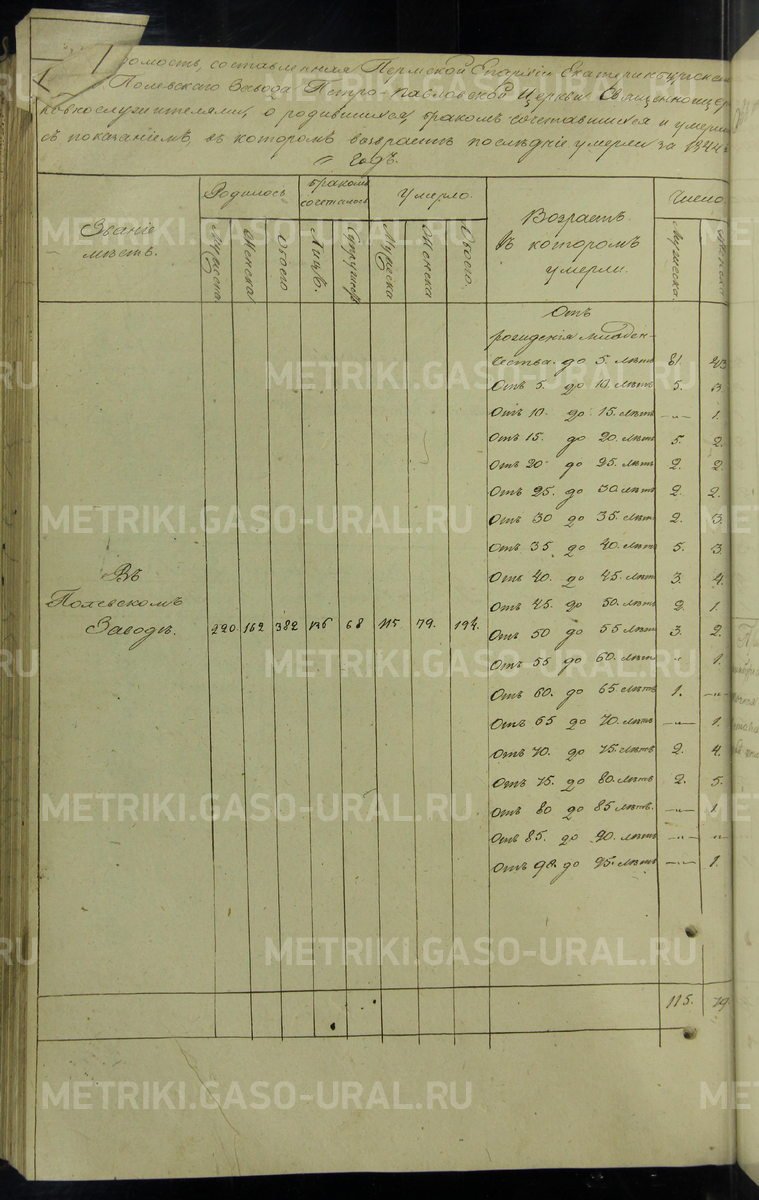 METRIKI.GASO-URAL.RU
домость, составленная Пермской Епархіи Екатеринбургска
Полевскаго Завода Петро-Павловской Церкви Священноцер
ковнослужителями, о родившихся бракомъ сочетавшихся и умерши
съ показаніемъ, въ которомъ возрастѣ послѣдніе умерли за 1844й
годъ.
Званіе мѣстъ.
Родилось
Мужеска
Женска
Обоего
Бракомъ сочеталось
Лицъ.
Супружест
Умерло.
Мужеска
Женска
Обоего.
Возрастъ
въ которомъ
умерли.
Число
Мужеска.
Женска
METRIKI.GASO-URAL.RU
Отъ
рожденія младен-
чества до 5 лѣтъ 81. 43
Отъ 5. до 10 лѣтъ 5. 3.
Отъ 10 до 15. лѣтъ —"— 1.
Отъ 15. до 20. лѣтъ 5. 2.
Отъ 20 до 25. лѣтъ 2. 2.
Отъ 25. до 30 лѣтъ 2. 2.
METRIKI.GASO-URAL.RU
Отъ 30 до 35. лѣтъ 2. 3.
Отъ 35 до 40. лѣтъ 5. 3.
Отъ 40. до 45. лѣтъ 3. 4.
Отъ 45. до 50. лѣтъ 2. 1.
Въ
Полевскомъ
Заводѣ. 220. 162 382 136 68 115 79. 194.
Отъ 50 до 55 лѣтъ 3. 2.
METRIKI.GASO-URAL.RU
Отъ 55 до 60. лѣтъ " 1.
Отъ 60. до 65 лѣтъ 1. —"—
Отъ 65 до 70. лѣтъ —"— 1.
Отъ 70. до 75. лѣтъ 2. 4.
Отъ 75. до 80. лѣтъ 2. 5.
METRIKI.GASO-URAL.RU
Отъ 80 до 85 лѣтъ. —"— 1.
Отъ 85. до 90. лѣтъ —"— "
Отъ 90. до 95. лѣтъ —"— 1.
METRIKI.GASO-URAL.RU
115. 79.
METRIKI.GASO-URAL.RU